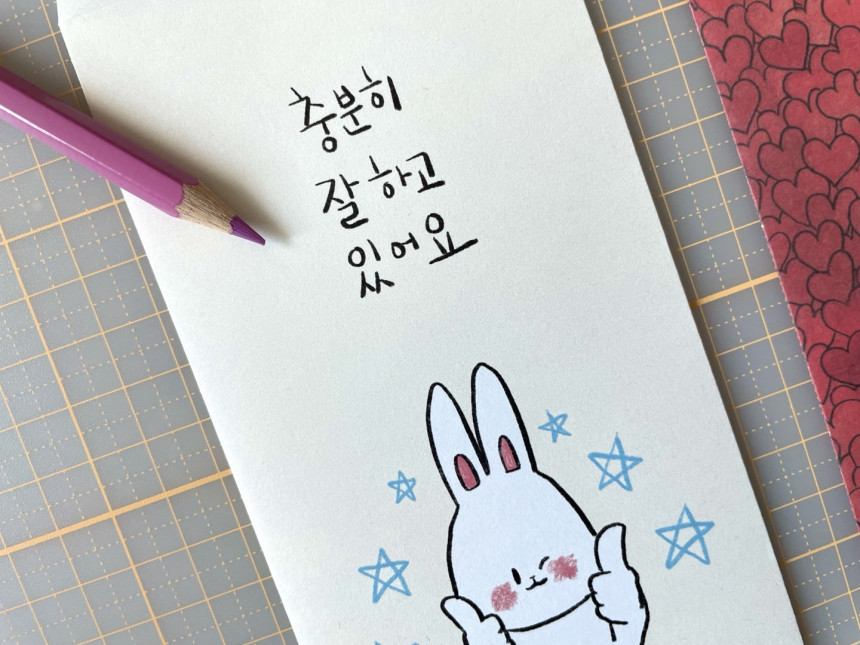 충분히
잘 하고
있어요